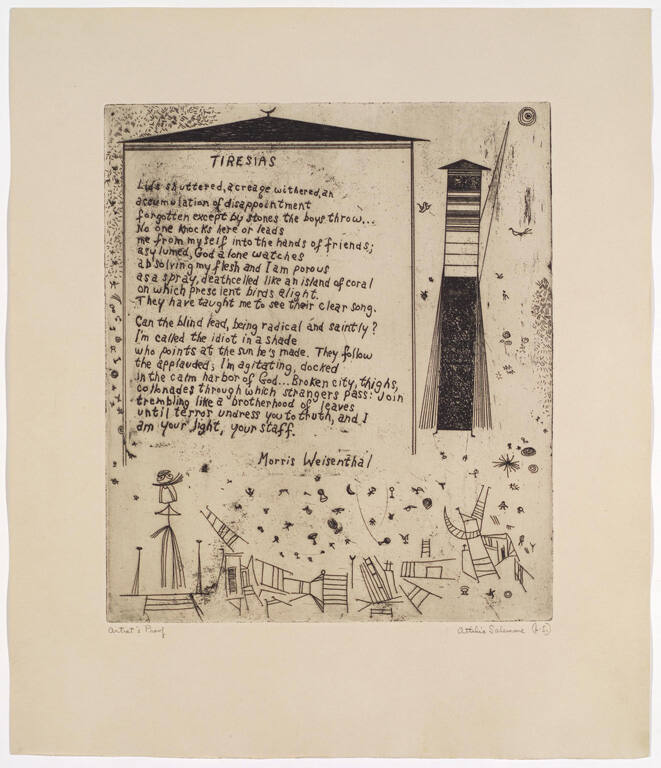 TIRESIAS
Lids shuttered, acreage withered, an
accumulation of disappointment
forgotten except by stones the boys throw...
No one knocks here or leads
me from myself into the hands of friends;
asylumed, God alone watches
absolving my flesh and I am porous
as a spray, deathcelled like an island of coral
on which prescient birds alight.
They have taught me to see their clear song.
Can the blind lead, being radical and saintly?
I'm called the idiot in a shade
who points at the sun he's made. They follow
the applauded; I'm agitating, docked
in the calm harbor of God... Broken city, thighs,
collonades through which strangers pass: Join
trembling like a brotherhood of leaves
until terror undress you to truth, and I
am your light, your staff.
Morris Weisenthal
Artist's Proof
Attilio Salemme